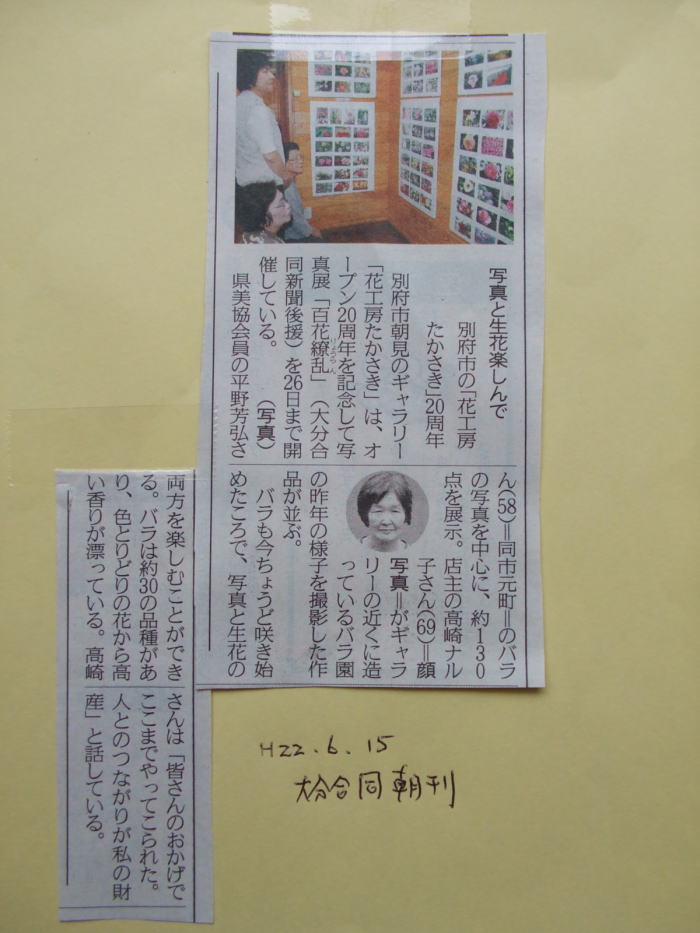 写真と生花楽しんで
別府市の「花工房
たかさき」20周年
別府市朝見のギャラリー
「花工房たかさき」は、オ
ープン20周年を記念して写
真展「百花繚乱」（大分合
りょうらん
同新聞後援）を26日まで開
催している。　（写真）
県美協会員の平野芳弘さ
ん(58)＝同市元町＝のバラ
の写真を中心に、約130
点を展示。店主の高崎ナル
子さん(69)＝顔
写真＝がギャラ
リーの近くに造
っているバラ園
の昨年の様子を撮影した作
品が並ぶ。
バラも今ちょうど咲き始
めたころで、写真と生花の
両方を楽しむことができ
る。バラは約30の品種があ
り、色とりどりの花から高
い香りが漂っている。高崎
さんは「皆さんのおかげで
ここまでやってこられた。
人とのつながりが私の財
産」と話している。
H22.6.15
大分合同 朝刊